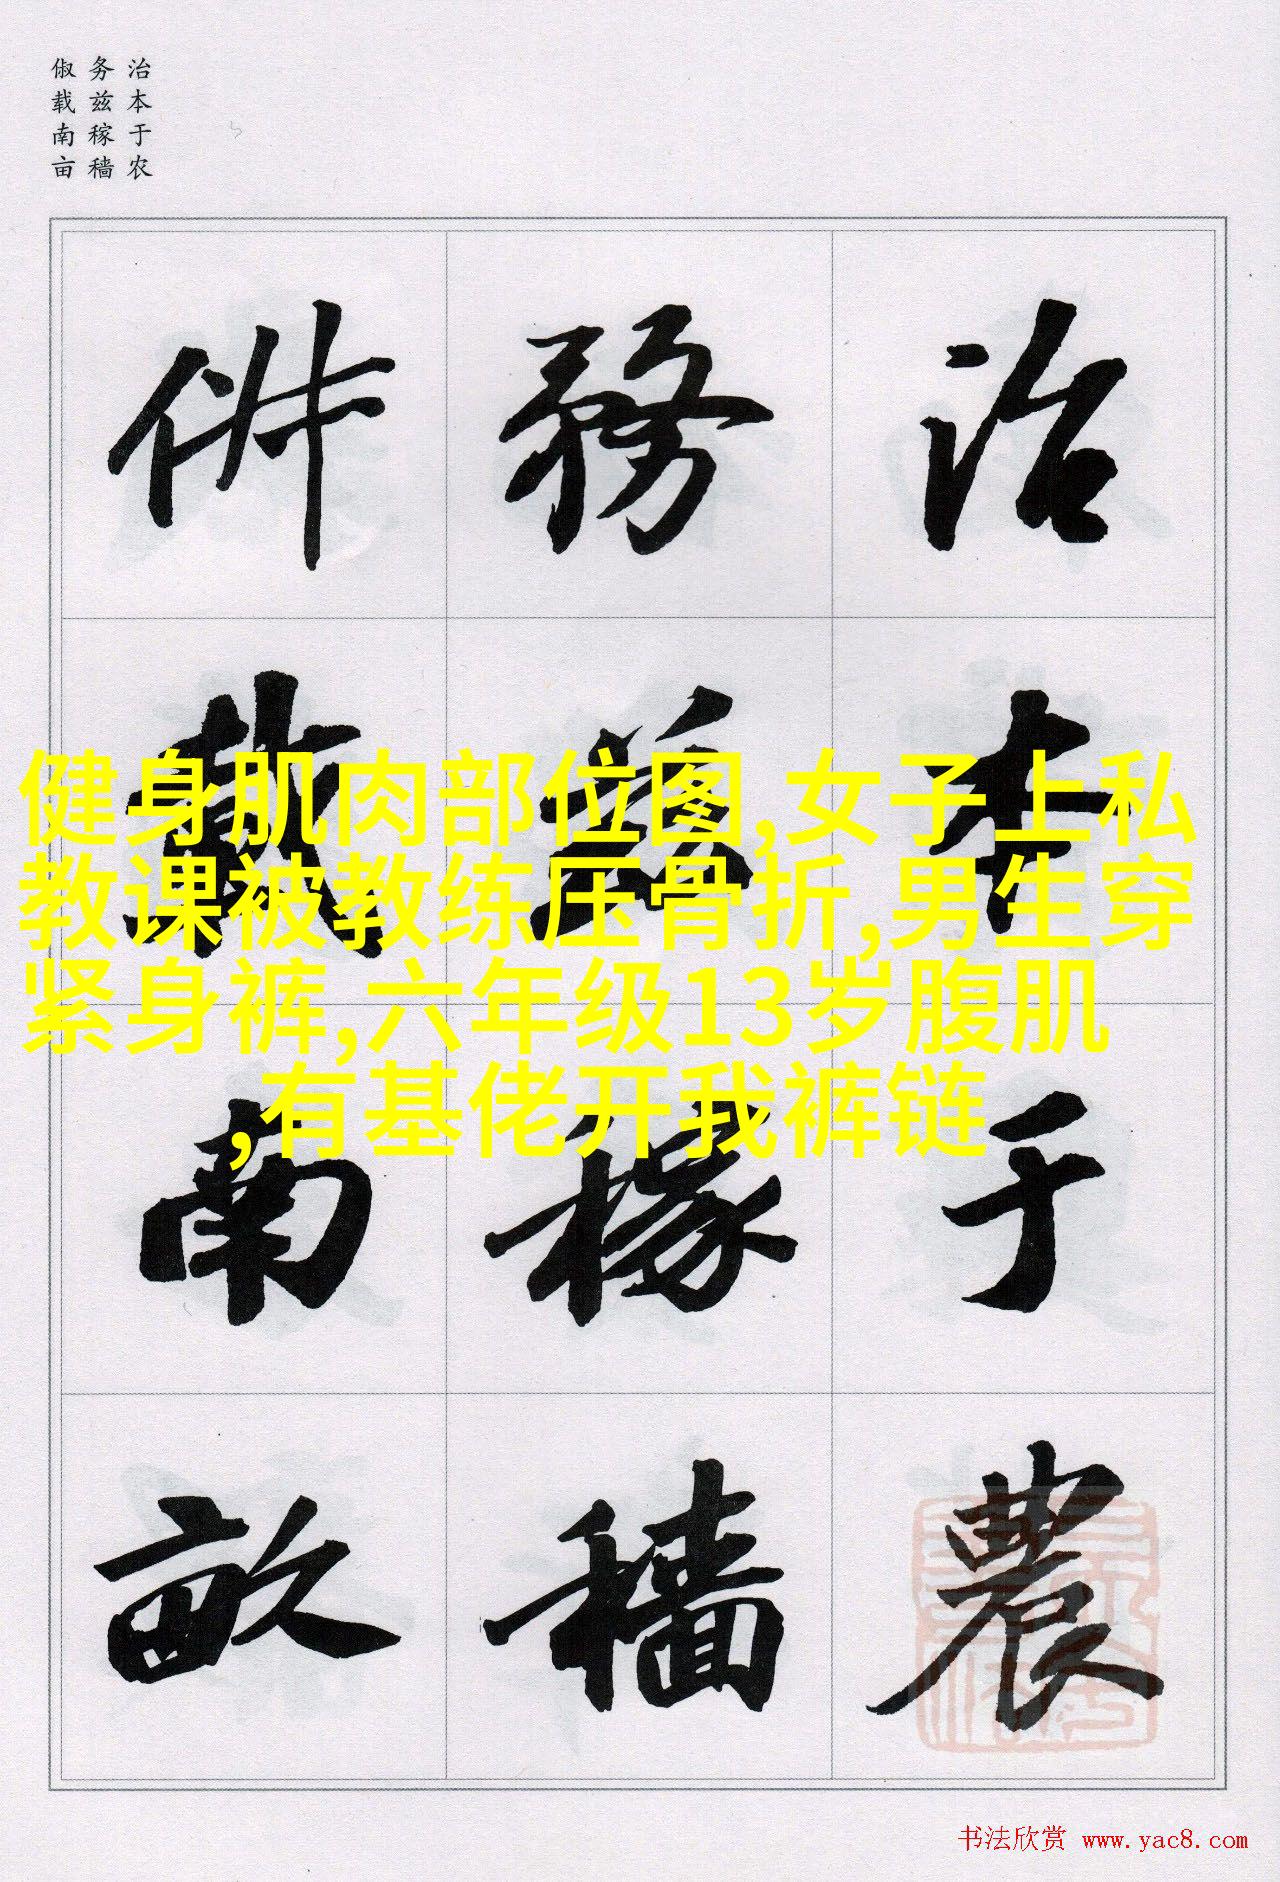 治本于农
务兹稼穑
俶载南亩
治本于農
務兹稼穡
俶載南畝
健身肌肉部位图,女子上私
教课被教练压骨折,男生穿
紧身裤,六年级13岁腹肌
,有基佬开我裤链
书法欣赏 www.yac8.com